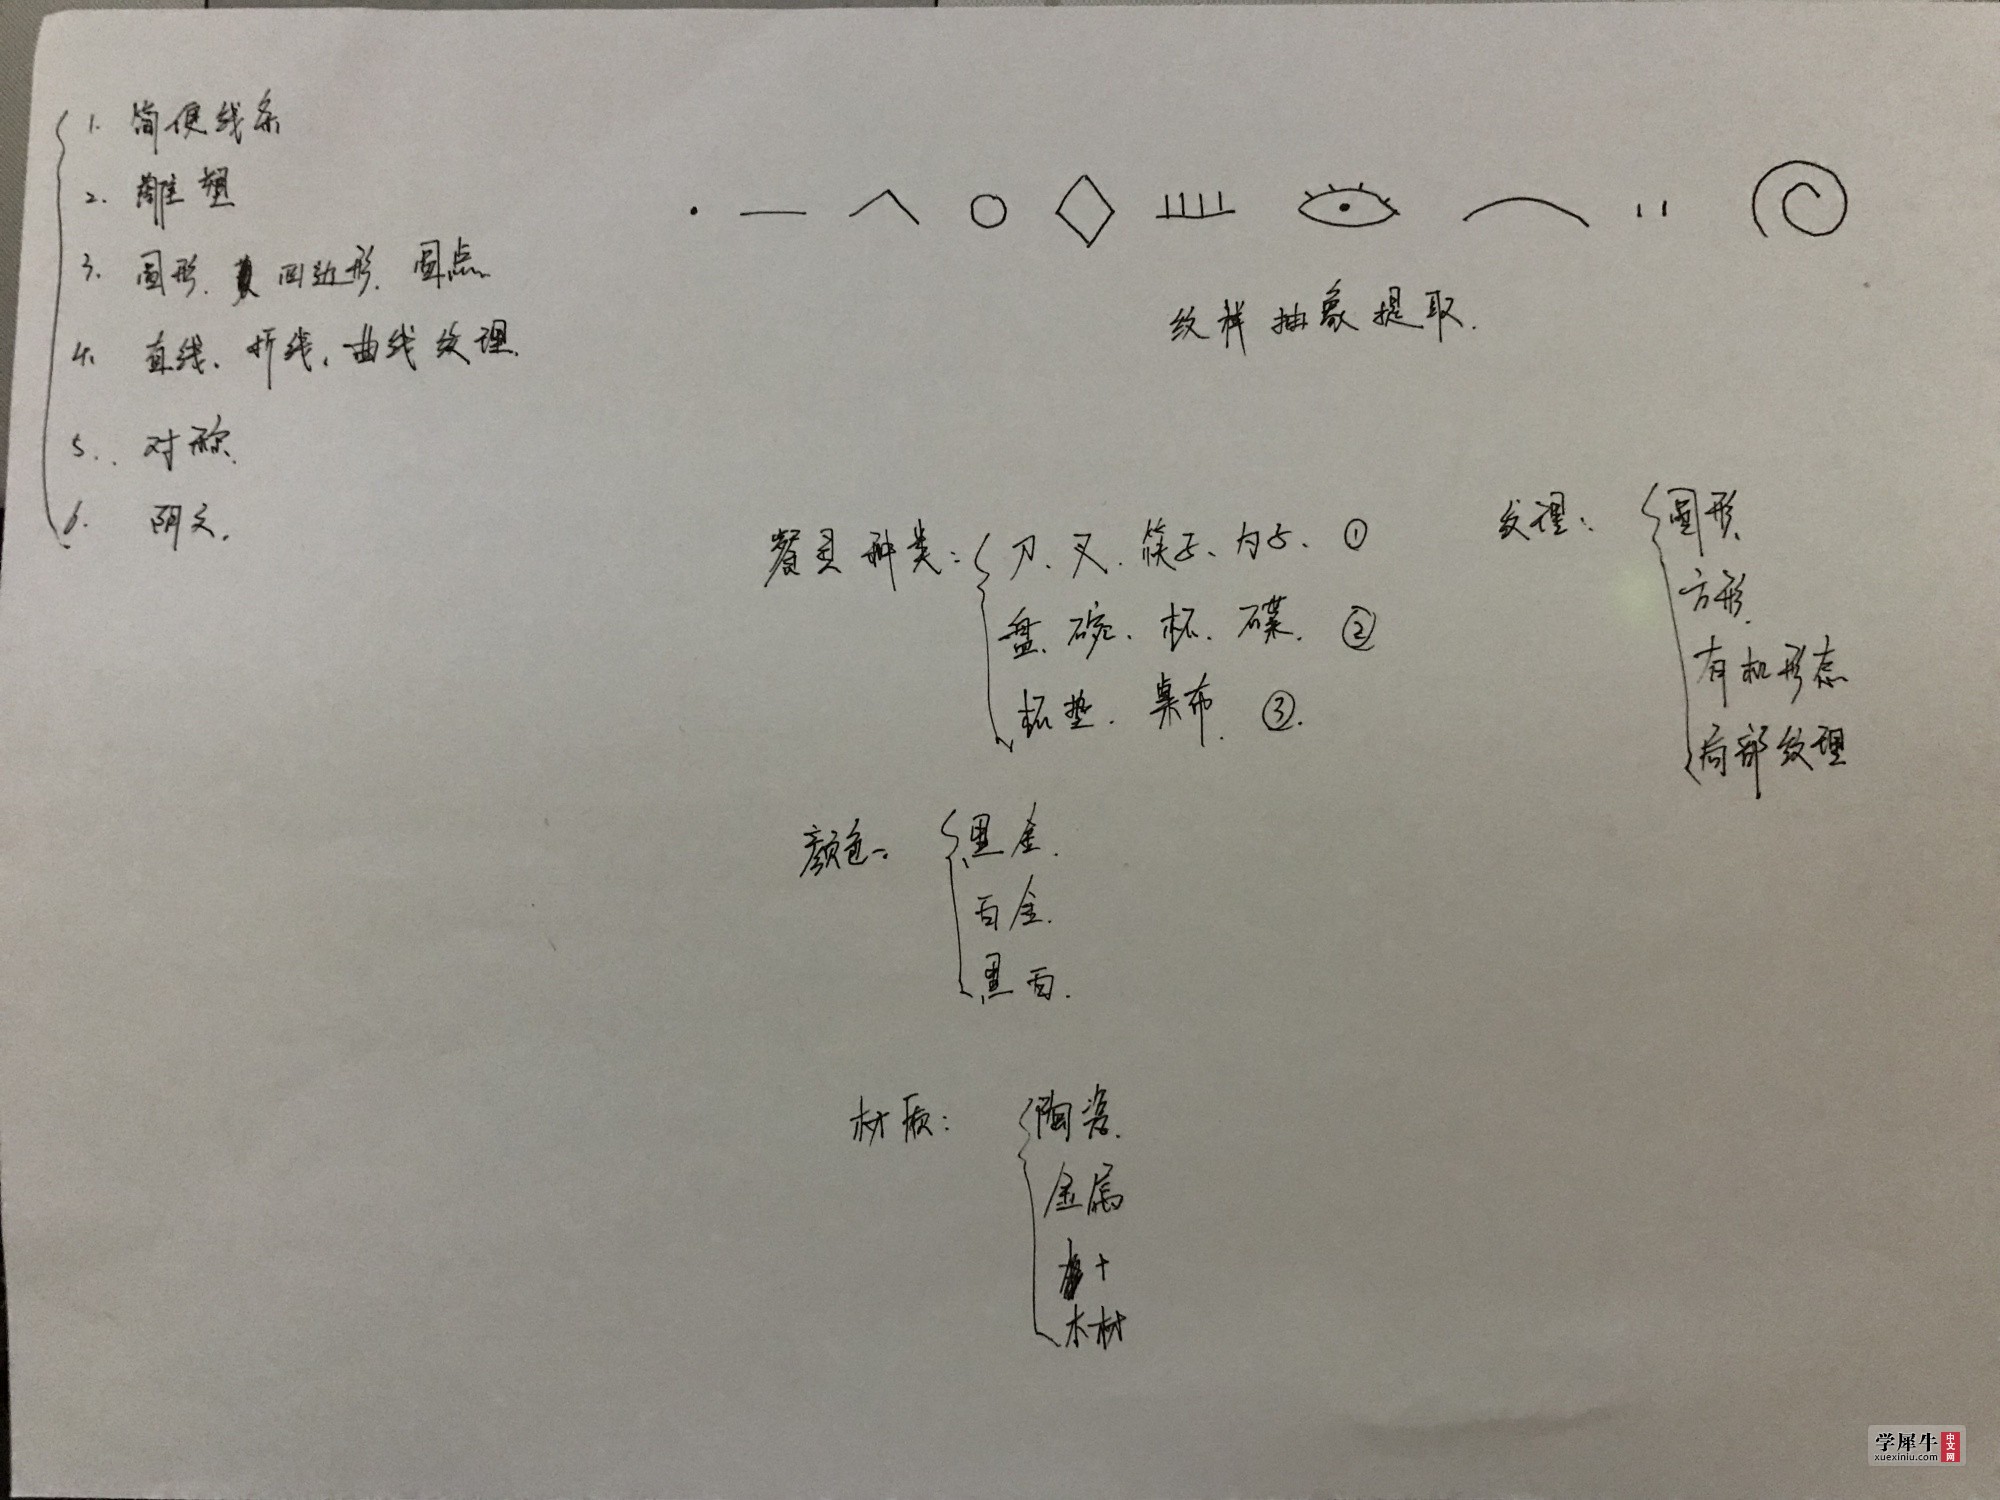 1. 简便线条
2. 雕塑
3. 圆形、四边形、圆点
4. 直线、折线、曲线纹理
5. 对称
6. 阴文
纹样抽象提取
餐具种类：刀、叉、筷子、勺子、①
盘、碗、杯、碟、②
杯垫、桌布、③
纹理：圆形
方形
有机形态
局部纹理
颜色：黑金
白金
黑白
材质：陶瓷
金属
+
木材
学犀牛中文网
xuexiniu.com